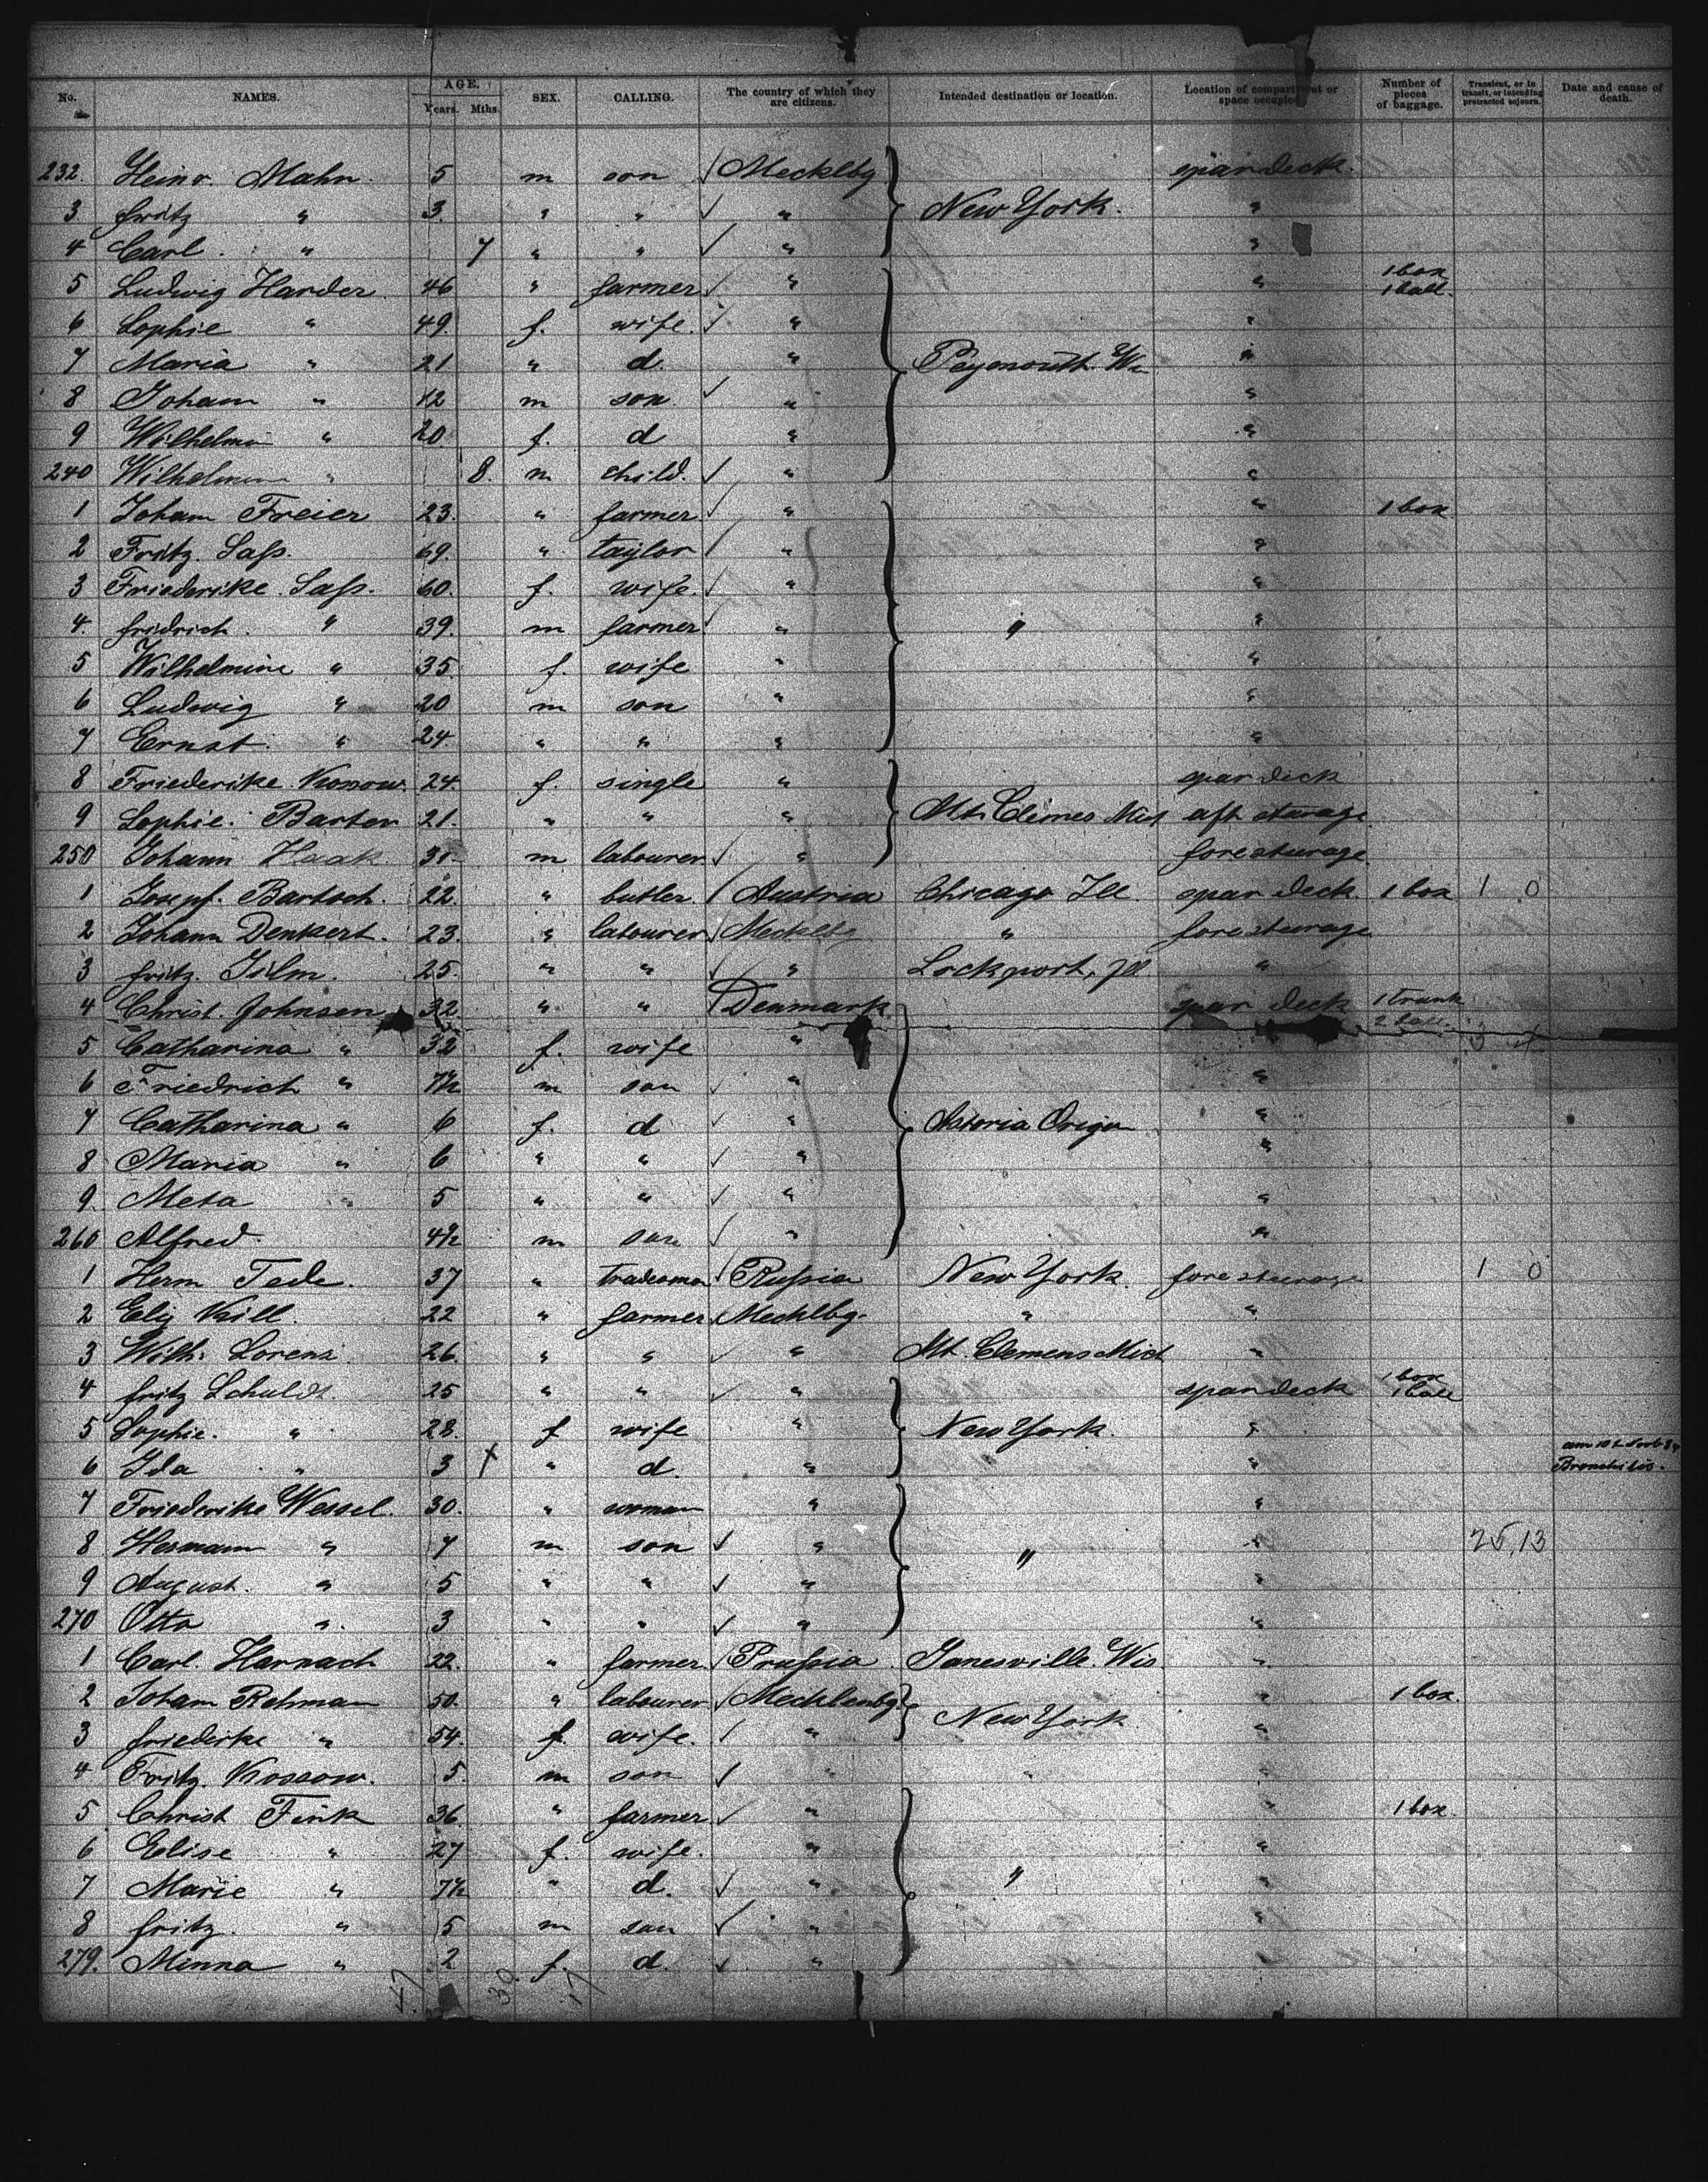 No. NAMES. AGE. Years. Mths. SEX. CALLING. The country of which they are citizens. Intended destination or location. Location of compartment or space occupied Number of pieces of baggage. Transient, or in transit, or intending protracted sojourn. Date and cause of death.
232. Heinr. Mahn. 5 m son Mecklbg spardeck.
3 Fritz " 3 " " " New York. "
4 Carl. " 7 " " " "
5 Ludwig Harder 46 " farmer " " 1 box 1 ball.
6 Sophie " 49. f. wife. " "
7 Maria " 21 " d. " "
8 Johann " 12 m son. " "
9 " 20 f. d " "
240 " 8. m child. " "
1 Johann Freier 23. " farmer " " 1 box
2 Fritz. Saß. 69. " taylor " "
3 Friederike. Saß. 60. f. wife. " "
4. Fridrich. " 39. m farmer " " "
5 Wilhelmine " 35. f. wife " "
6 Ludwig " 20 m son " "
7 Ernst. " 24. " " " "
8 Friederike 24. f. single " spar deck
9 Sophie. 21. " " " Mt. Clemes aft sturage
250 Johann Haak. m labourer " fore sturage
1 Josepf. Bartosch. 22. " butler Austria Chicago Ill. spar deck 1 box 1 0
2 Johann Denkert. 23. " labourer Mecklbg " fore sturage
3 Fritz. 25. " " " Lockport, Ill "
4 Christ. Johnsen 32. " " Denmark spar deck 1 trunk
5 Catharina " 32 f. wife "
6 Friedrich " 7½ m son " "
7 Catharina " 6 f. d " Astoria Origon "
8 Maria " 6 " " " "
9. Meta " 5 " " " "
260 Alfred. 4½ m son " "
1 Herm Tede. 37 " tradesman Rußia New York. fore sturage 1 0
2 22 " farmer Mecklbg. " "
3 Wilh. Lorenz 26. " " " Mt. Clemens Mich "
4 Fritz Schuldt 25 " " " spardeck 1 box 1 ball
5 Sophie. " 28. f wife " New York. "
6 Ida " 3 " d. " " Bronchitis.
7 Friederike Wessel. 30. " woman " "
8 Hermann " 7 m son " " " 25,13
9 August. " 5 " " " "
270 Otto " 3 " " " "
1 Carl. Harnach 22. " farmer Prußia Janesville. Wis. "
2 Johann Rehman 50. " labourer Mecklenbg. New York " 1 box.
3 Friederke " 54. f. wife. " "
4 Fritz. Kossow. 5. m son " " "
5 Christ Fink 36. " farmer " " 1 box.
6 Elise " 27 f. wife. " "
7 Marie " 7½ " d. " " "
8 Fritz. " 5 m son " "
279. Minna " 2 f. d. " "
47 30 17